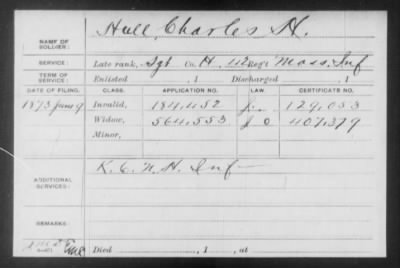 NAME OF SOLDIER: Hall, Charles H.
SERVICE: Late rank, Sgt Co. H, 42 Reg't Mass. Inf
TERM OF SERVICE: Enlisted , 1 Discharged , 1
DATE OF FILING. CLASS. APPLICATION NO. LAW. CERTIFICATE NO.
1873 June 9 Invalid, 184,452 129,053
Widow, 564,553 407,379
Minor,
ADDITIONAL SERVICES: K. 6 N. H. Inf
REMARKS:
Died , 1 , at